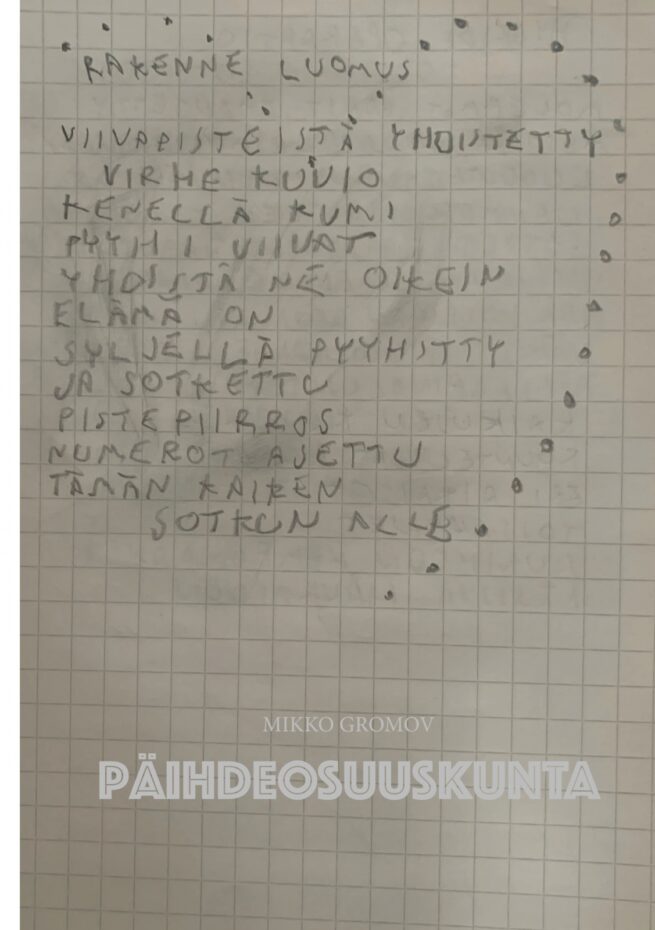 RAKENNE LUOMUS
VIIVAPISTEISTÄ YHDISTETTY
VIRHE KUVIO
KENELLÄ KUMI
PYYHI VIIVAT
YHDISTÄ NE OIKEIN
ELÄMÄ ON
SYLJELLÄ PYYHITTY
JA SOTKETTU
PISTEPIIRROS
NUMEROT ASETTU
TÄMÄN KAIKEN
SOTKUN ALLE.
MIKKO GROMOV
PÄIHDEOSUUSKUNTA